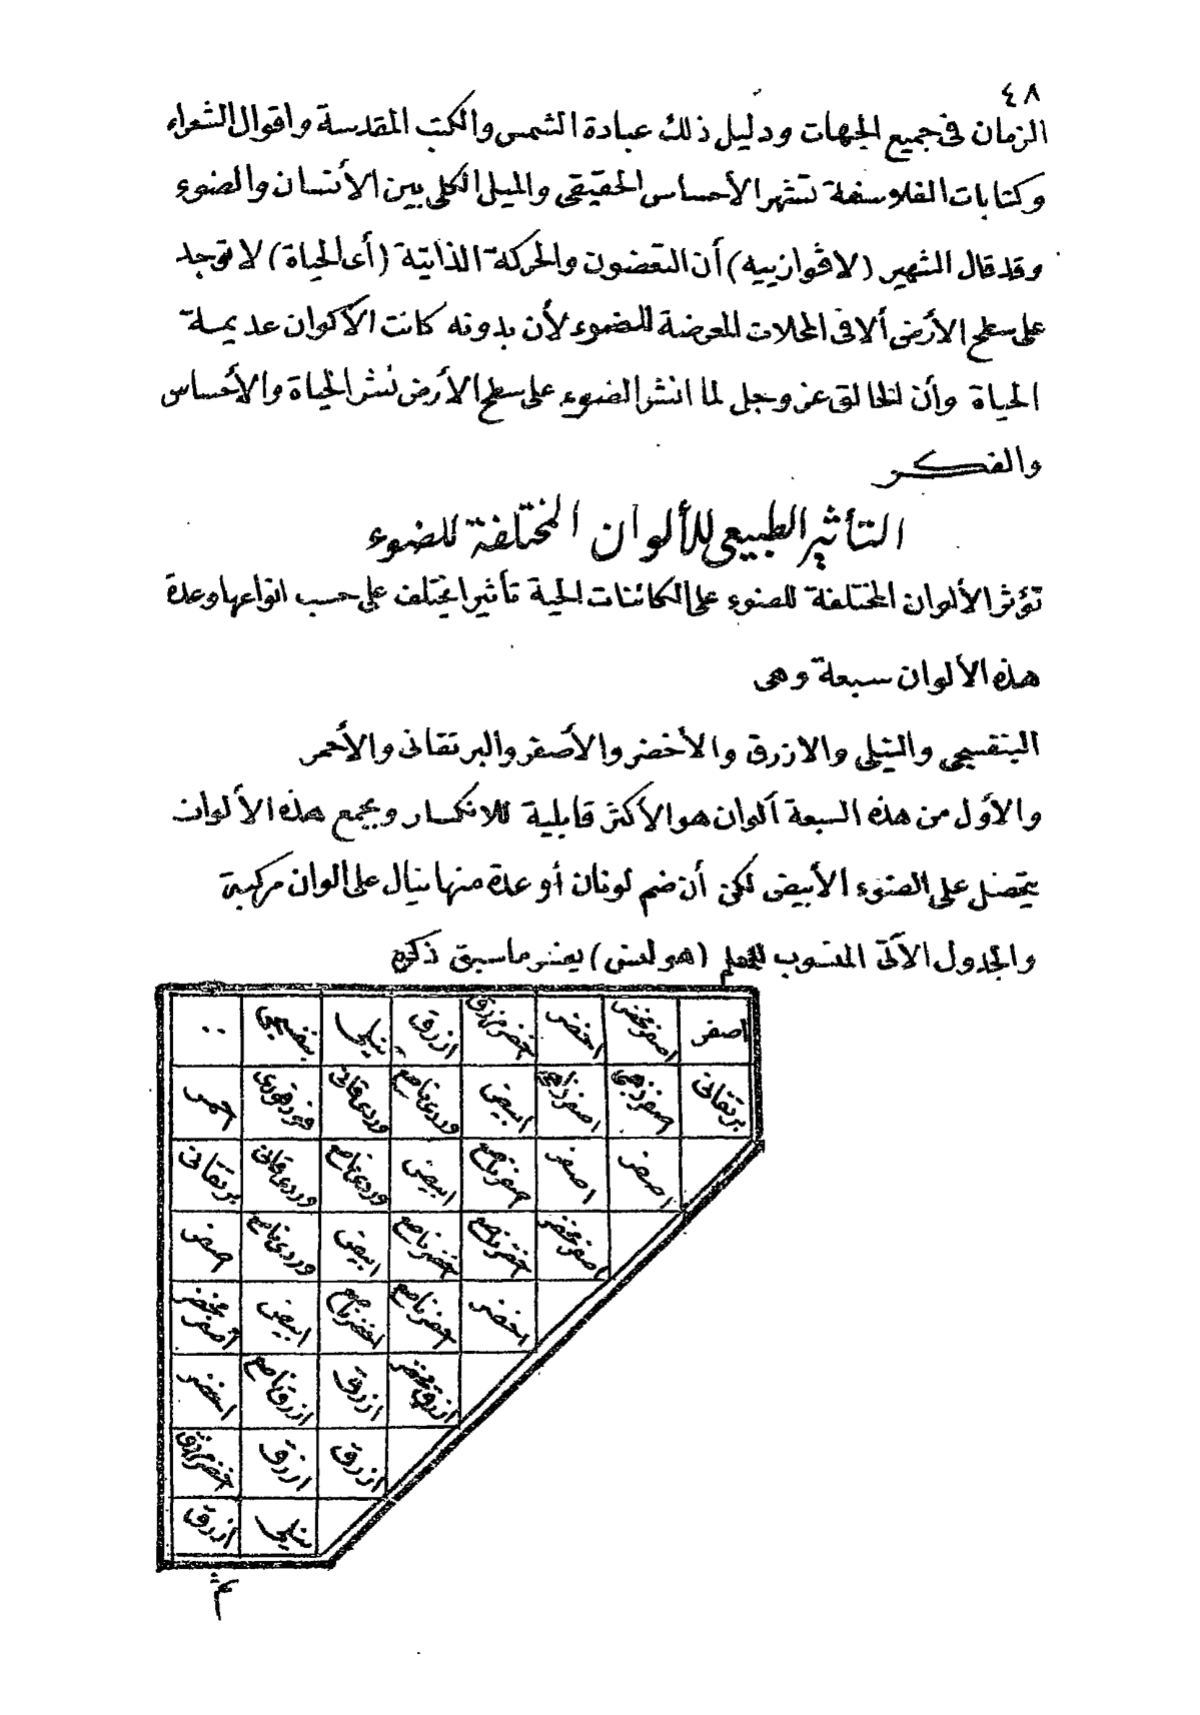 ٤٨
الزمان فى جميع الجهات ودليل ذلك عبادة الشمس والكتب المقدسة واقوال الشعراء
وكتابات الفلاسفة تشهر الأحساس الحقيقى والميل الكلى بين الأنسان والضوء
وقد قال الشهير (لاڤوازييه) أن التعضون والحركة الذاتية (أى الحياة) لا توجد
على سطح الأرض ألا فى المحلات المعرضة للضوء لأن بدونه كانت الأكوان عديمة
الحياة وأن الخالق عز وجل لما انشر الضوء على سطح الأرض نشر الحياة والأحساس
والفكر
التأثير الطبيعى للألوان المختلفة للضوء
تؤثر الألوان المختلفة للضوء على الكائنات الحية تأثيرا يختلف على حسب انواعها وعدة
هذه الألوان سبعة وهى
البنفسجى والنيلى والازرق والأخضر والأصفر والبرتقانى والأحمر
والأول من هذه السبعة ألوان هو الأكثر قابلية للانكسار وبجمع هذه الألوان
يتحصل على الضوء الأبيض لكن أن ضم لونان أو عدة منها ينال على الوان مركبة
والجدول الآتى المنسوب للمعلم (هولتس) يفسر ما سبق ذكره
اصفر اصفر مخضر اخضر اخضر مزرق ازرق نيلى بنفسجى ..
برتقانى اصفر ذهبى اصفر ذهبى ابيض وردى ناصع وردى قانى احمر
اصفر اصفر اصفر ناصع ابيض وردى ناصع وردى قانى برتقانى
اصفر مخضر اخضر ناصع اخضر ناصع ابيض وردى ناصع اصفر
اخضر اخضر ناصع اخضر ناصع ابيض أصفر مخضر
ازرق مخضر ازرق ازرق ناصع اخضر
ازرق ازرق اخضر مزرق
نيلى ازرق